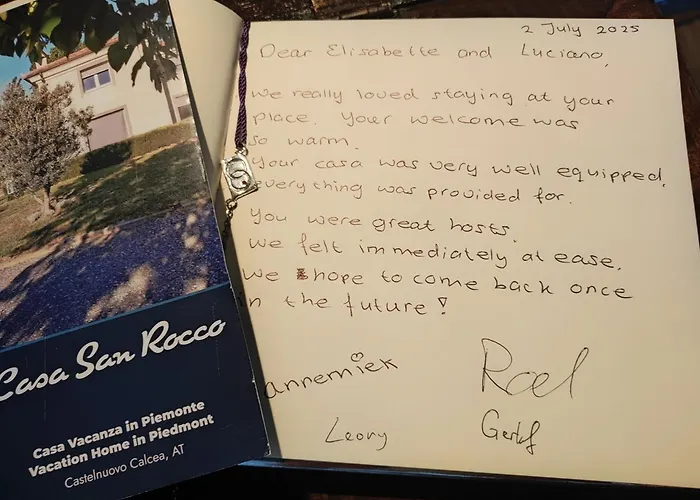 Casa San Rocco
Casa Vacanza in Piemonte
Vacation Home in Piedmont
Castelnuovo Calcea, AT
2 July 2025
Dear Elisabette and Luciano,
We really loved staying at your
place. Your welcome was
so warm.
Your casa was very well equipped,
everything was provided for.
You were great hosts.
We felt immediately at ease.
We hope to come back once
in the future!
annemiek
Roel
Leony